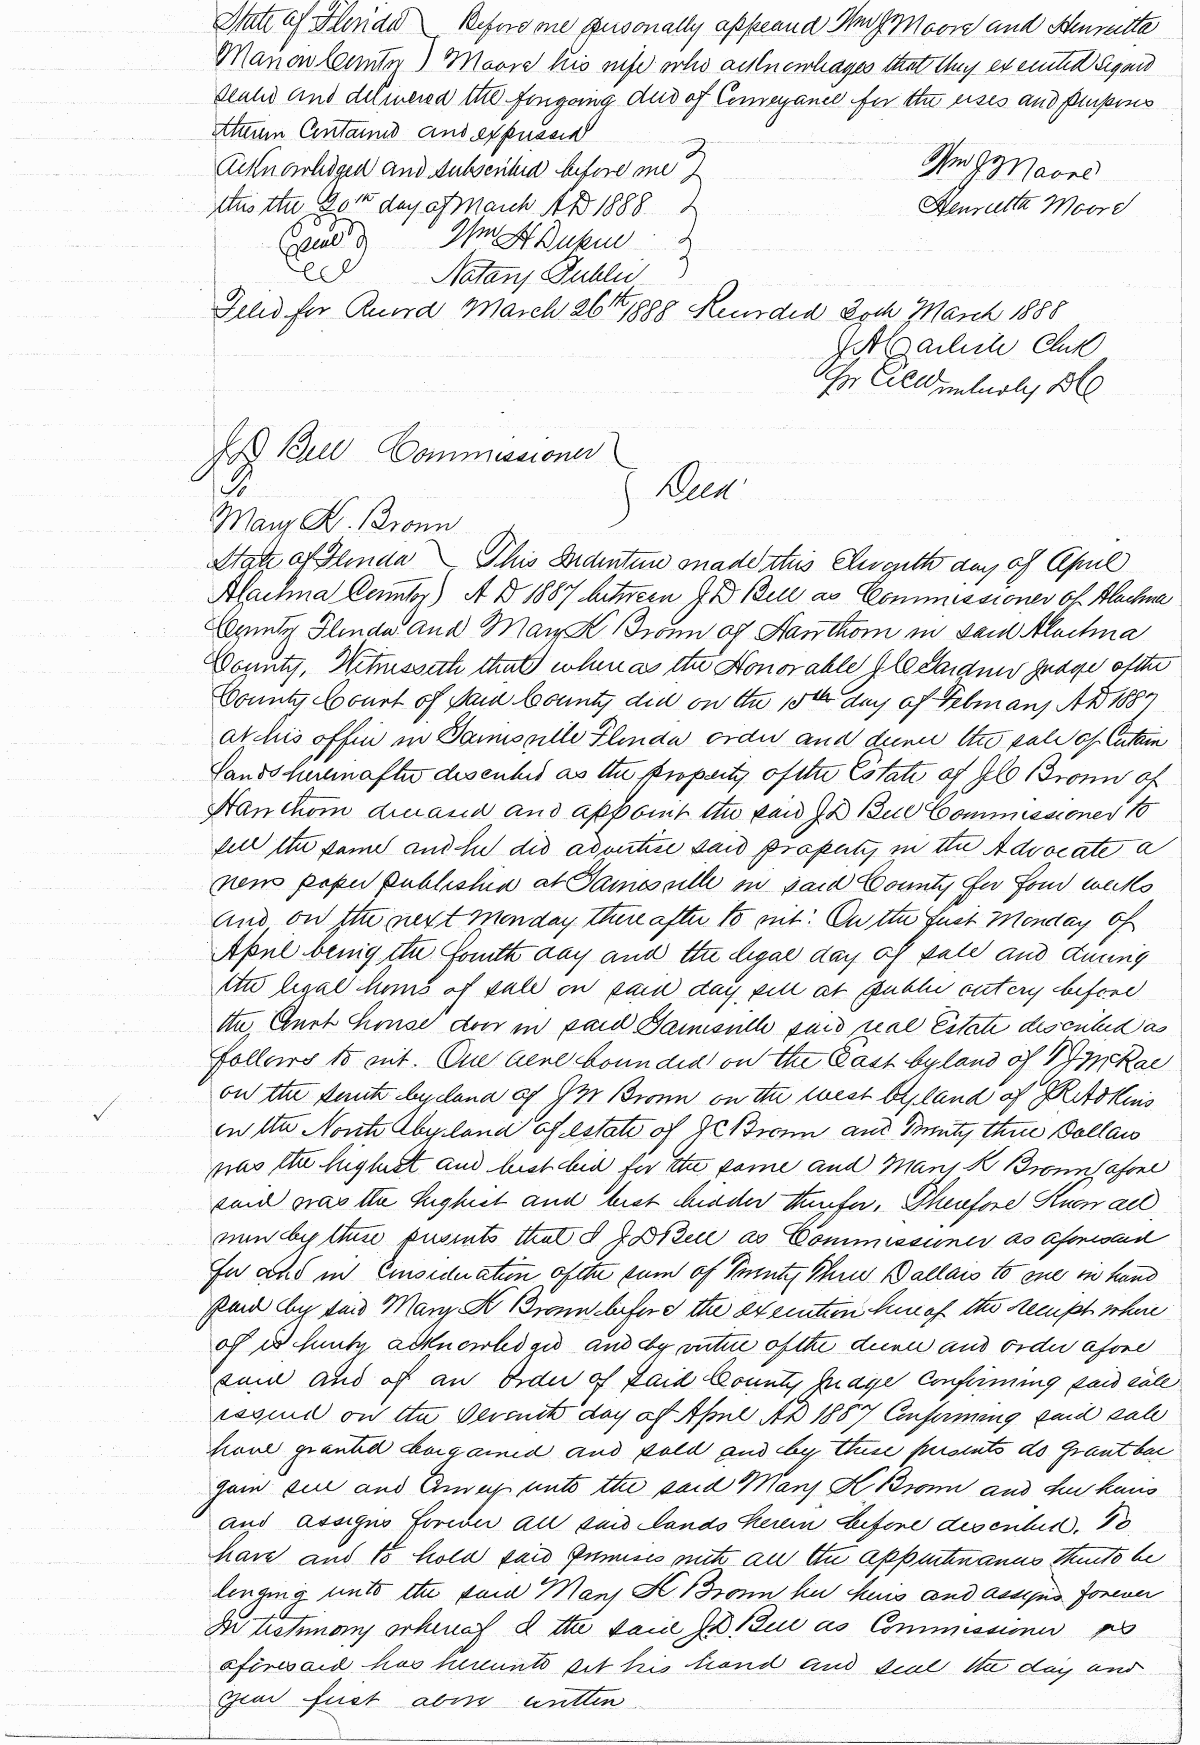 State of Florida ) Before me personally appeared Wm J Moore and Henrietta
Marion County ) Moore his wife who acknowledges that they executed signed
sealed and delivered the foregoing deed of Conveyance for the uses and purposes
therein Contained and expressed
Acknowledged and subscribed before me } Wm J Moore
this the 20th day of March AD 1888 } Henrietta Moore
(seal) Wm H Dupue }
Notary Public }
Filed for Record March 26th 1888 Recorded 30th March 1888
J A Carlisle Clerk
for Wimberly DC
J D Bell Commissioner }
To } Deed
Mary K. Brown
State of Florida ) This Indenture made this Eleventh day of April
Alachua County ) A D 1887 between J D Bell as Commissioner of Alachua
County Florida and Mary K Brown of Hawthorn in said Alachua
County, Witnesseth that whereas the Honorable J C Gardner Judge of the
County Court of said County did on the 15th day of February AD 1887
at his office in Gainesville Florida order and decree the sale of Certain
lands hereinafter described as the property of the Estate of J C Brown of
Hawthorn deceased and appoint the said J D Bell Commissioner to
sell the same and he did advertise said property in the Advocate a
news paper published at Gainesville in said County for four weeks
and on the next Monday thereafter to wit: On the first Monday of
April being the fourth day and the legal day of sale and during
the legal hours of sale on said day sell at public outcry before
the Court house door in said Gainesville said real Estate described as
follows to wit. One acre bounded on the East by land of T J McRae
on the south by land of J W Brown on the west by land of J R Adkins
on the North by land of estate of J C Brown and Twenty three Dollars
was the highest and best bid for the same and Mary K Brown afore
said was the highest and best bidder therefor, Therefore Know all
men by these presents that I J D Bell as Commissioner as aforesaid
for and in Consideration of the sum of Twenty Three Dollars to me in hand
paid by said Mary K Brown before the execution hereof the receipt where
of is hereby acknowledged and by virtue of the decree and order afore
said and of an order of said County Judge Confirming said sale
issued on the Seventh day of April AD 1887 Confirming said sale
have granted bargained and sold and by these presents do grant bar
gain sell and Convey unto the said Mary K Brown and her heirs
and assigns forever all said lands herein before described. To
have and to hold said premises with all the appurtenances thereto be
longing unto the said Mary K Brown her heirs and assigns forever
In testimony whereof I the said J.D. Bell as Commissioner as
aforesaid has hereunto set his hand and seal the day and
year first above written